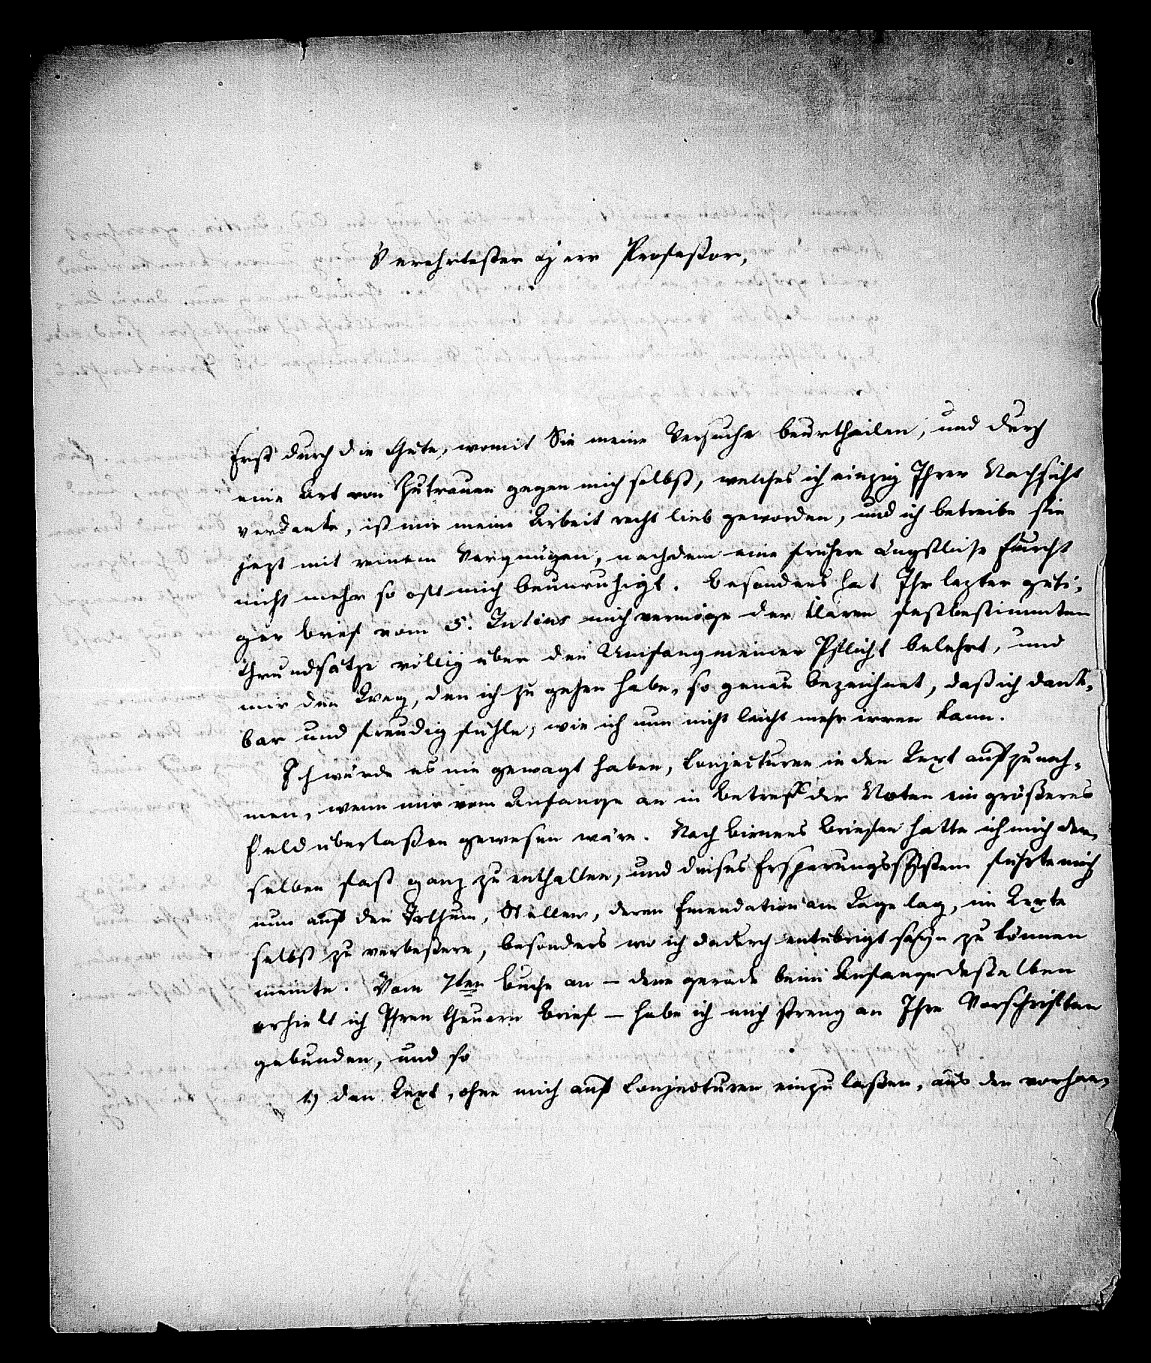 Verehrtester Herr Profeßor,
Erst durch die Güte, womit Sie meine Versuche beurtheilen, und durch
eine Art von Zutrauen gegen mich selbst, welches ich einzig Ihrer Nachsicht
verdanke, ist mir meine Arbeit recht lieb geworden, und ich betreibe sie
jezt mit reinem Vergnügen, nachdem eine frühere ängstliche Furcht
nicht mehr so oft mich beunruhigt. Besonders hat Ihr lezter güti-
ger Brief vom 5. Julius mich vermöge der klaren festbestimmten
Grundsätze völlig über den Umfang meiner Pflicht belehrt, und
mir den Weg, den ich zu gehen habe, so genau bezeichnet, daß ich dank-
bar und freudig fühle, wie ich nun nicht leicht mehr irren kann.
Ich würde es nie gewagt haben, Conjecturen in den Text aufzuneh-
men, wenn mir vom Anfange an in Betreff der Noten ein größeres
Feld überlaßen gewesen wäre. Nach Briefen hatte ich mich der-
selben fast ganz zu enthalten, und dieses Ersparungssystem führte mich
nun auf den Irthum, Stellen, deren Emendation am Tage lag, im Texte
selbst zu verbeßern, besonders wo ich dadurch entübrigt seyn zu können
meinte. Vom 7ten Buche an – denn gerade beim Anfange deßelben
erhielt ich Ihren theuern Brief – habe ich mich streng an Ihre Vorschriften
gebunden, und so
1) den Text, ohne mich auf Conjecturen einzulaßen, aus den vorhan-